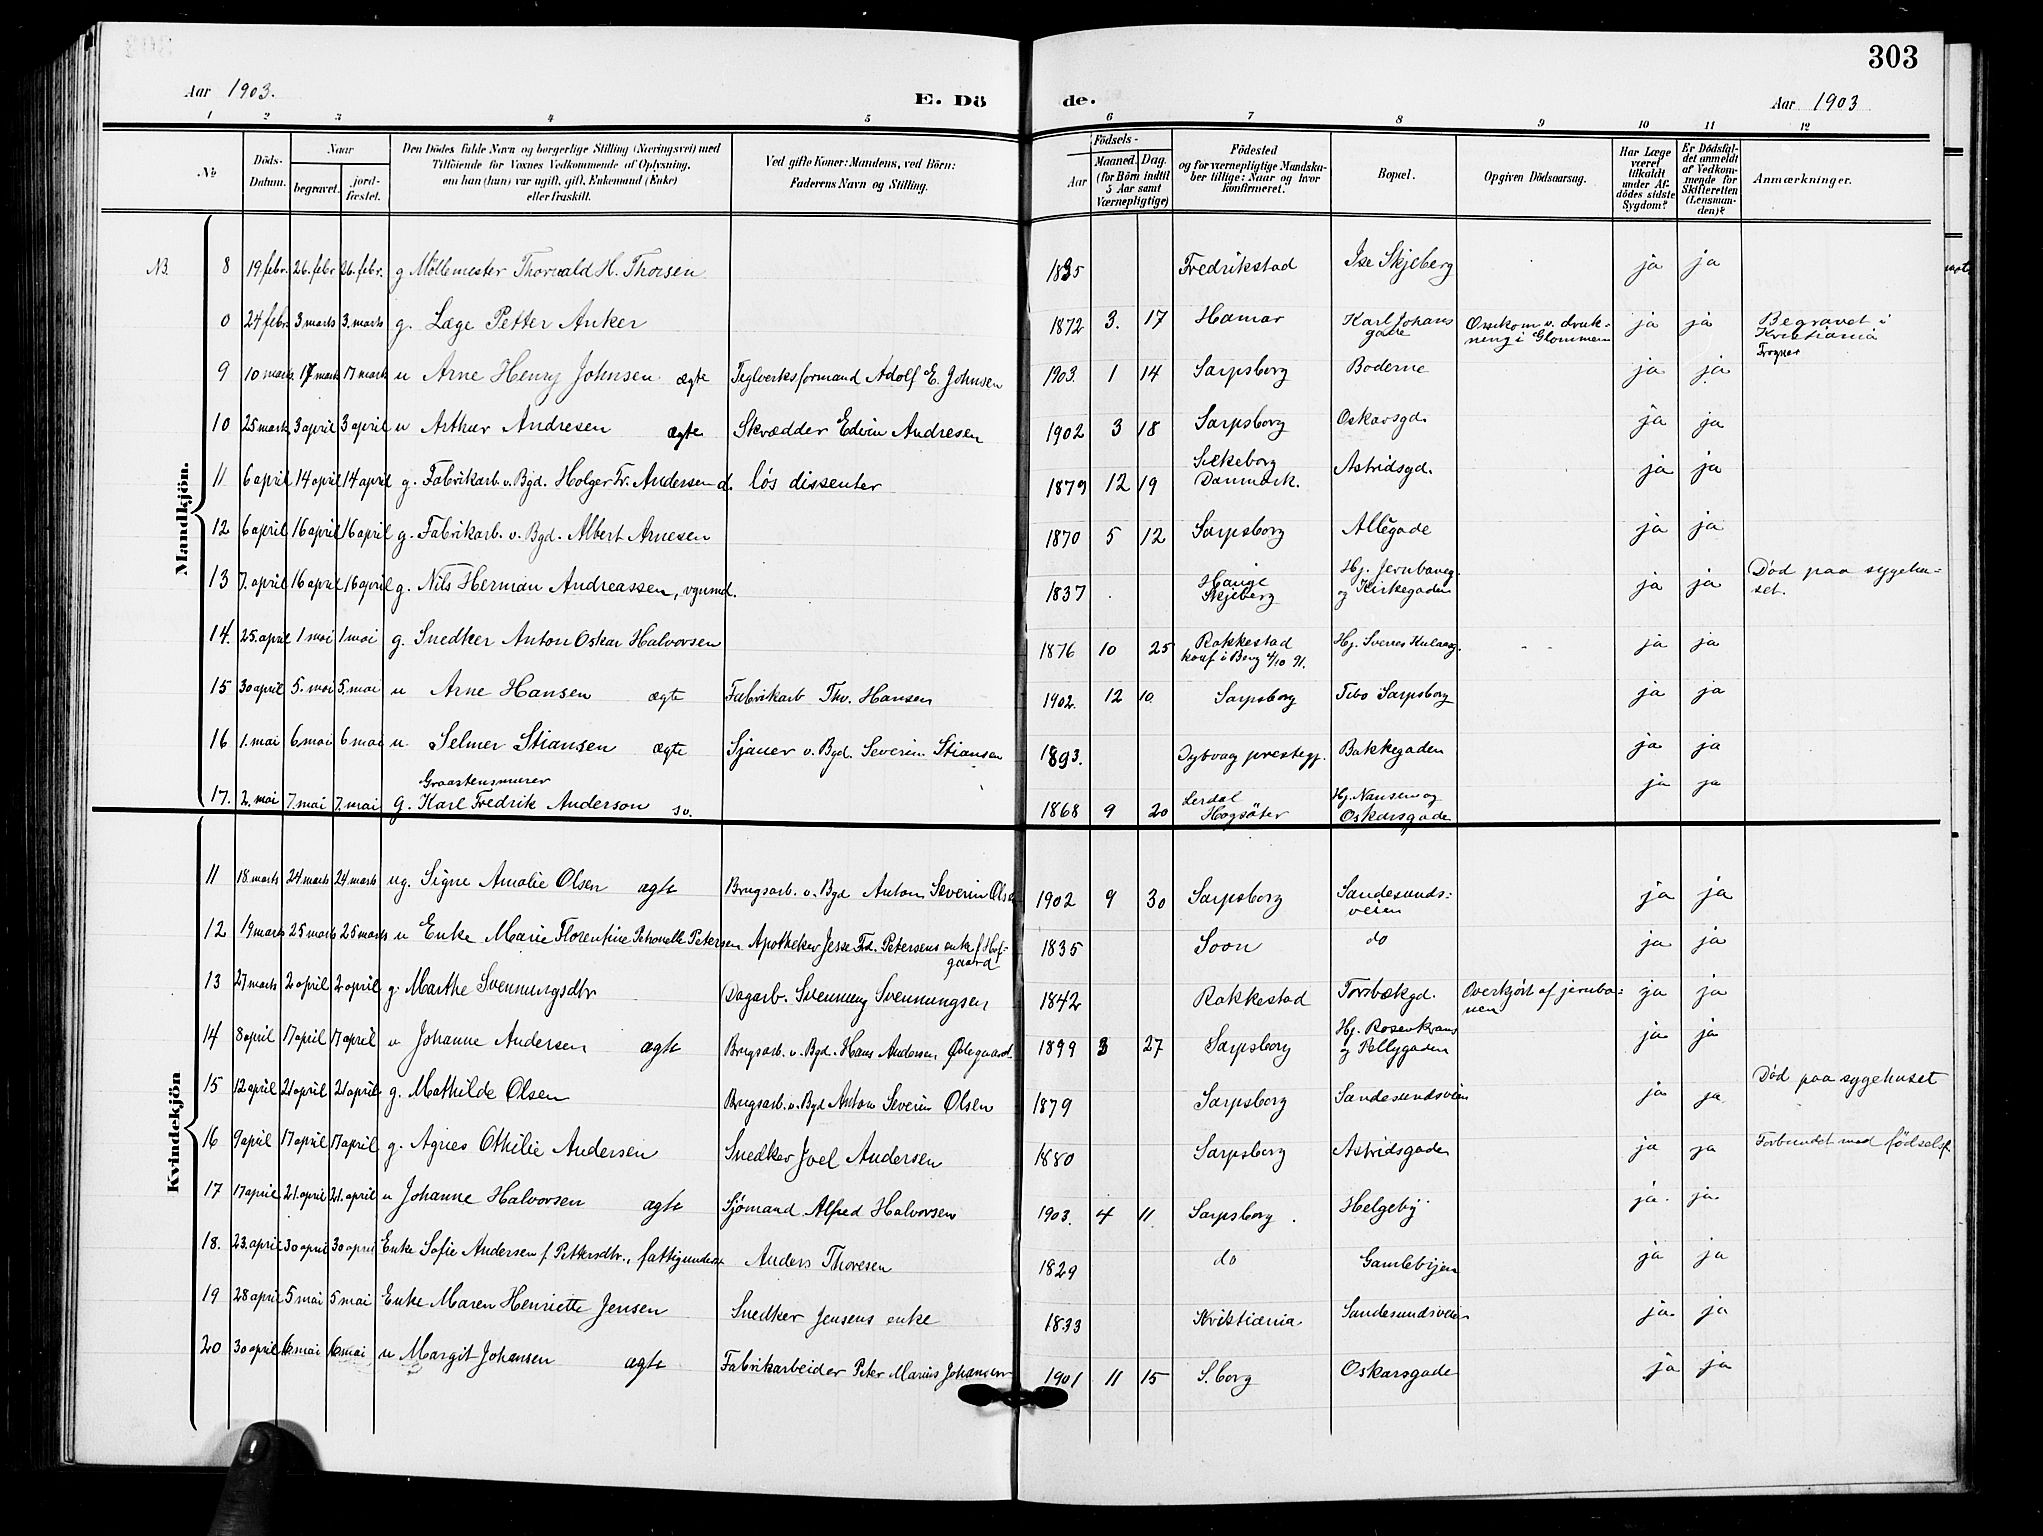 303
Aar 1903.
E. Dö de.
Aar 1903
1 2 3 4 5 6 7 8 9 10 11 12
No
Döds-Datum.
Naar
begravet.
jord-fæstet.
Den Dödes fulde Navn og borgerlige Stilling (Næringsvei) med
Tilföiende for Voxnes Vedkommende af Oplysning,
om han (hun) var ugift, gift, Enkemand (Enke)
eller fraskilt.
Ved gifte Koner: Mandens, ved Börn:
Faderens Navn og Stilling.
Födsels-
Aar
Maaned. Dag.
(for Börn indtil
5 Aar samt
Værnepligtige)
Födested
og for værnepligtige Mandska-
ber tillige: Naar og hvor
konfirmeret.
Bopæl.
Opgiven Dödsaarsag.
Har Læge
været
tilkaldt
under Af-
dödes sidste
Sygdom?
Er Dödsfal-
det anmeldt
af Vedkom-
mende for
Skifteretten
(Lensman-
den)?
Anmærkninger.
Mandkjön.
NB. 8 19 febr. 26. febr 26. febr. g Möllemester Thorvald H. Thorsen 1835 Fredrikstad Ise Skjeberg ja ja
0 24 febr 3 marts 3. marts g. Læge Petter Anker 1872 3. 17 Hamar Karl Johans gade Omkom v. druk-ning i Glommen ja ja Begravet i Kristiania Frogner
9 10 mars. 17 mark 17 mark u Arne Henry Johnsen ægte Teglverksformand Adolf E. Johnsen 1903. 1 14 Sarpsborg Boderne ja ja
10 25 mark 3 april 3 april u Arthur Andresen ægte Skrædder Edvin Andresen 1902 3 18 Sarpsborg Oskarsgd. ja ja
11 6 april 14 april 14 april g. Fabrikarb. v. Bgd. Holger Fr. Andersen d. løs dissenter 1879 12 19 Silkeborg Danmark. Astridsgd. ja ja
12 6 april 16 april 16 april g. Fabrikarb. v. Bgd. Albert Arnesen 1870 5 12 Sarpsborg Allègade ja ja
13 7. april 16 april 16 april g. Nils Herman Andreassen, vgnmd. 1837 Hauge Skjeberg Hj. Jernbaneg. og Kirkegaden ja ja Død paa sygehu-set.
14. 25. april 1 mai 1 mai g. Snedker Anton Oskar Halvorsen 1876 10 25 Rakkestad konf i Berg 4/10 91. Hj. Svenes ja ja
15 30 april 5. mai 5. mai u Arne Hansen ægte Fabrikarb Thv. Hansen 1902. 12 10. Sarpsborg Tibo Sarpsborg ja ja
16 1. mai 6 mai 6 mai u. Selmer Stiansen ægte Sjauer v. Bgd. Severin Stiansen 1893. Dybvag prestegj. Bakkegaden ja ja
17. 2. mai 7. mai 7. mai g. Graastensmurer Karl Fredrik Anderson sv. 1868 9 20 Lerdal Høgsäter Hj. Nansen og Oskarsgade ja ja
Kvindekjön
11 18 marts 24 marts 24 marts ug. Signe Amalie Olsen ægte Brugsarb. v. Bgd Anton Severin Olsen 1902 9 30 Sarpsborg Sandesunds-veien ja ja
12 19 marts 25 mark 25 marts u Enke Marie Florentine Petronelle Petersen Apotheker Jesse Fd. Petersens enke f Hof-gaard 1835 Soon do ja ja
13 27 marts 2 april 2 april g. Marthe Svenningsdtr Dagarb. Svenning Svenningsen 1842 Rakkestad Torsbækgd. Overkjørt af jernba-nen ja ja
14 8 april 17 april 17 april u Johanne Andersen ægte Brugsarb. v. Bgd. Hans Andersen Ødegaard. 1899 3 27 Sarpsborg Hj. Rosenkrans og Pellygaden ja ja
15 12 april 21 april 21 april g. Mathilde Olsen Brugsarb. v. Bgd Anton Severin Olsen 1879 Sarpsborg Sandesundsveien ja ja Død paa sygehuset
16 9 april 17 april 17 april g. Agnes Othilie Andersen Snedker Joel Andersen 1880 Sarpsborg Astridsgaden ja ja Forbundet med fødselsf.
17 17 april 21. april 21. april u Johanne Halvorsen ægte Sjømand Alfred Halvorsen 1903. 4 11. Sarpsborg. Helgeby ja. ja.
18. 23. april 30 april 30 april Enke Sofie Andersen f Pettersdtr., fattigunderst Anders Thoresen 1829 do Gamlebyen ja ja
19 28 april 5 mai 5 mai Enke Maren Henriette Jensen Snedker Jensens enke 1833 Kristiania Sandesundsveien ja. ja
20 30 april 6 mai 6 mai u Margit Johansen ægte Fabrikarbeider Peter Marius Johansen 1901 11 15 S.borg Oskarsgade ja ja